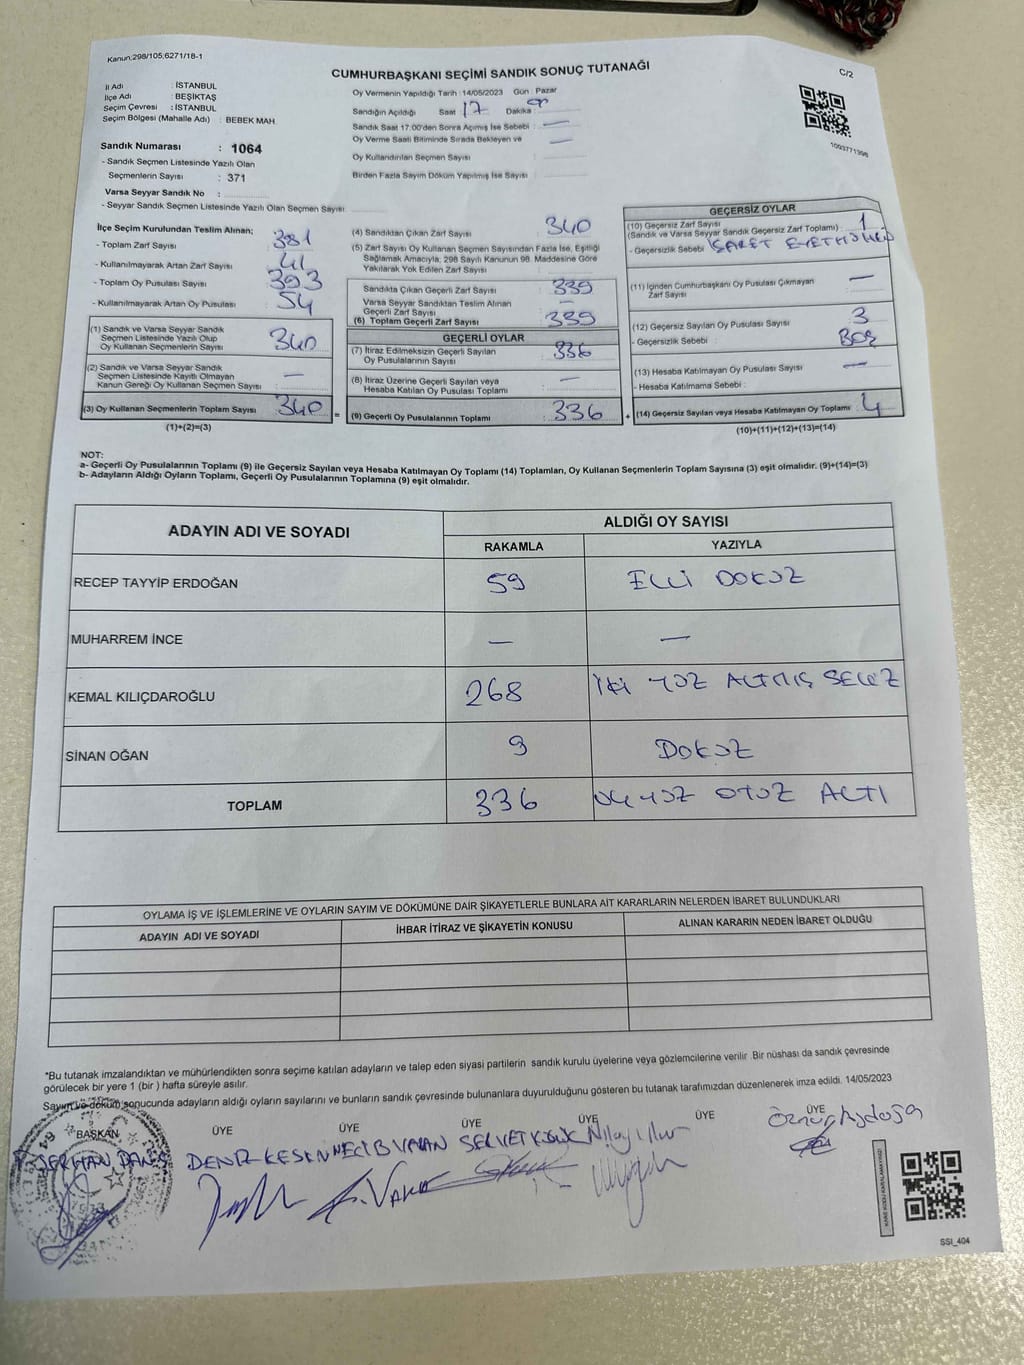 Kanun:298/105;6271/18-1
CUMHURBAŞKANI SEÇİMİ SANDIK SONUÇ TUTANAĞI
C/2
İl Adı : İSTANBUL
İlçe Adı : BEŞİKTAŞ
Seçim Çevresi : İSTANBUL
Seçim Bölgesi (Mahalle Adı) : BEBEK MAH.
Oy Vermenin Yapıldığı Tarih :14/05/2023 Gün : Pazar
Sandığın Açıldığı Saat 17 Dakika
Sandık Saat 17:00'den Sonra Açılmış İse Sebebi : —
Oy Verme Saati Bitiminde Sırada Bekleyen ve —
Oy Kullandırılan Seçmen Sayısı :
Birden Fazla Sayım Döküm Yapılmış İse Sayısı :
1093771398
Sandık Numarası : 1064
- Sandık Seçmen Listesinde Yazılı Olan
Seçmenlerin Sayısı : 371
Varsa Seyyar Sandık No :
- Seyyar Sandık Seçmen Listesinde Yazılı Olan Seçmen Sayısı
İlçe Seçim Kurulundan Teslim Alınan;
- Toplam Zarf Sayısı : 381
- Kullanılmayarak Artan Zarf Sayısı : 41
- Toplam Oy Pusulası Sayısı : 393
- Kullanılmayarak Artan Oy Pusulası : 54
(1) Sandık ve Varsa Seyyar Sandık
Seçmen Listesinde Yazılı Olup
Oy Kullanan Seçmenlerin Sayısı : 340
(2) Sandık ve Varsa Seyyar Sandık
Seçmen Listesinde Kayıtlı Olmayan
Kanun Gereği Oy Kullanan Seçmen Sayısı : —
(3) Oy Kullanan Seçmenlerin Toplam Sayısı : 340 =
(1)+(2)=(3)
(4) Sandıktan Çıkan Zarf Sayısı : 340
(5) Zarf Sayısı Oy Kullanan Seçmen Sayısından Fazla İse, Eşitliği
Sağlamak Amacıyla, 298 Sayılı Kanunun 98. Maddesine Göre
Yakılarak Yok Edilen Zarf Sayısı :
Sandıkta Çıkan Geçerli Zarf Sayısı : 339
Varsa Seyyar Sandıktan Teslim Alınan
Geçerli Zarf Sayısı : —
(6) Toplam Geçerli Zarf Sayısı : 339
GEÇERLİ OYLAR
(7) İtiraz Edilmeksizin Geçerli Sayılan
Oy Pusulalarının Sayısı : 336
(8) İtiraz Üzerine Geçerli Sayılan veya
Hesaba Katılan Oy Pusulası Toplamı : —
(9) Geçerli Oy Pusulalarının Toplamı : 336 +
GEÇERSİZ OYLAR
(10) Geçersiz Zarf Sayısı
(Sandık ve Varsa Seyyar Sandık Geçersiz Zarf Toplamı) : 1
- Geçersizlik Sebebi : İŞARET
(11) İçinden Cumhurbaşkanı Oy Pusulası Çıkmayan
Zarf Sayısı : —
(12) Geçersiz Sayılan Oy Pusulası Sayısı : 3
- Geçersizlik Sebebi : BOŞ
(13) Hesaba Katılmayan Oy Pusulası Sayısı : —
- Hesaba Katılmama Sebebi :
(14) Geçersiz Sayılan veya Hesaba Katılmayan Oy Toplamı : 4
(10)+(11)+(12)+(13)=(14)
NOT:
a- Geçerli Oy Pusulalarının Toplamı (9) ile Geçersiz Sayılan veya Hesaba Katılmayan Oy Toplamı (14) Toplamları, Oy Kullanan Seçmenlerin Toplam Sayısına (3) eşit olmalıdır. (9)+(14)=(3)
b- Adayların Aldığı Oyların Toplamı, Geçerli Oy Pusulalarının Toplamına (9) eşit olmalıdır.
ADAYIN ADI VE SOYADI
ALDIĞI OY SAYISI
RAKAMLA YAZIYLA
RECEP TAYYİP ERDOĞAN 59 ELLİ DOKUZ
MUHARREM İNCE — —
KEMAL KILIÇDAROĞLU 268 İKİ YÜZ ALTMIŞ SEKİZ
SİNAN OĞAN 9 DOKUZ
TOPLAM 336 ÜÇ YÜZ OTUZ ALTI
OYLAMA İŞ VE İŞLEMLERİNE VE OYLARIN SAYIM VE DÖKÜMÜNE DAİR ŞİKAYETLERLE BUNLARA AİT KARARLARIN NELERDEN İBARET BULUNDUKLARI
ADAYIN ADI VE SOYADI İHBAR İTİRAZ VE ŞİKAYETİN KONUSU ALINAN KARARIN NEDEN İBARET OLDUĞU
*Bu tutanak imzalandıktan ve mühürlendikten sonra seçime katılan adayların ve talep eden siyasi partilerin sandık kurulu üyelerine veya gözlemcilerine verilir .Bir nüshası da sandık çevresinde
görülecek bir yere 1 (bir ) hafta süreyle asılır.
Sayım ve döküm sonucunda adayların aldığı oyların sayılarını ve bunların sandık çevresinde bulunanlara duyurulduğunu gösteren bu tutanak tarafımızdan düzenlenerek imza edildi. 14/05/2023
BAŞKAN ÜYE ÜYE ÜYE ÜYE ÜYE ÜYE
SERHAN DENİZ KESKİN NECİB VARAN SERVET Öznur Aydoğa
SSI_404